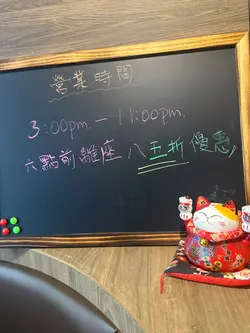 營業時間
3:00pm. - 11:00pm.
六點前離座 八五折優惠